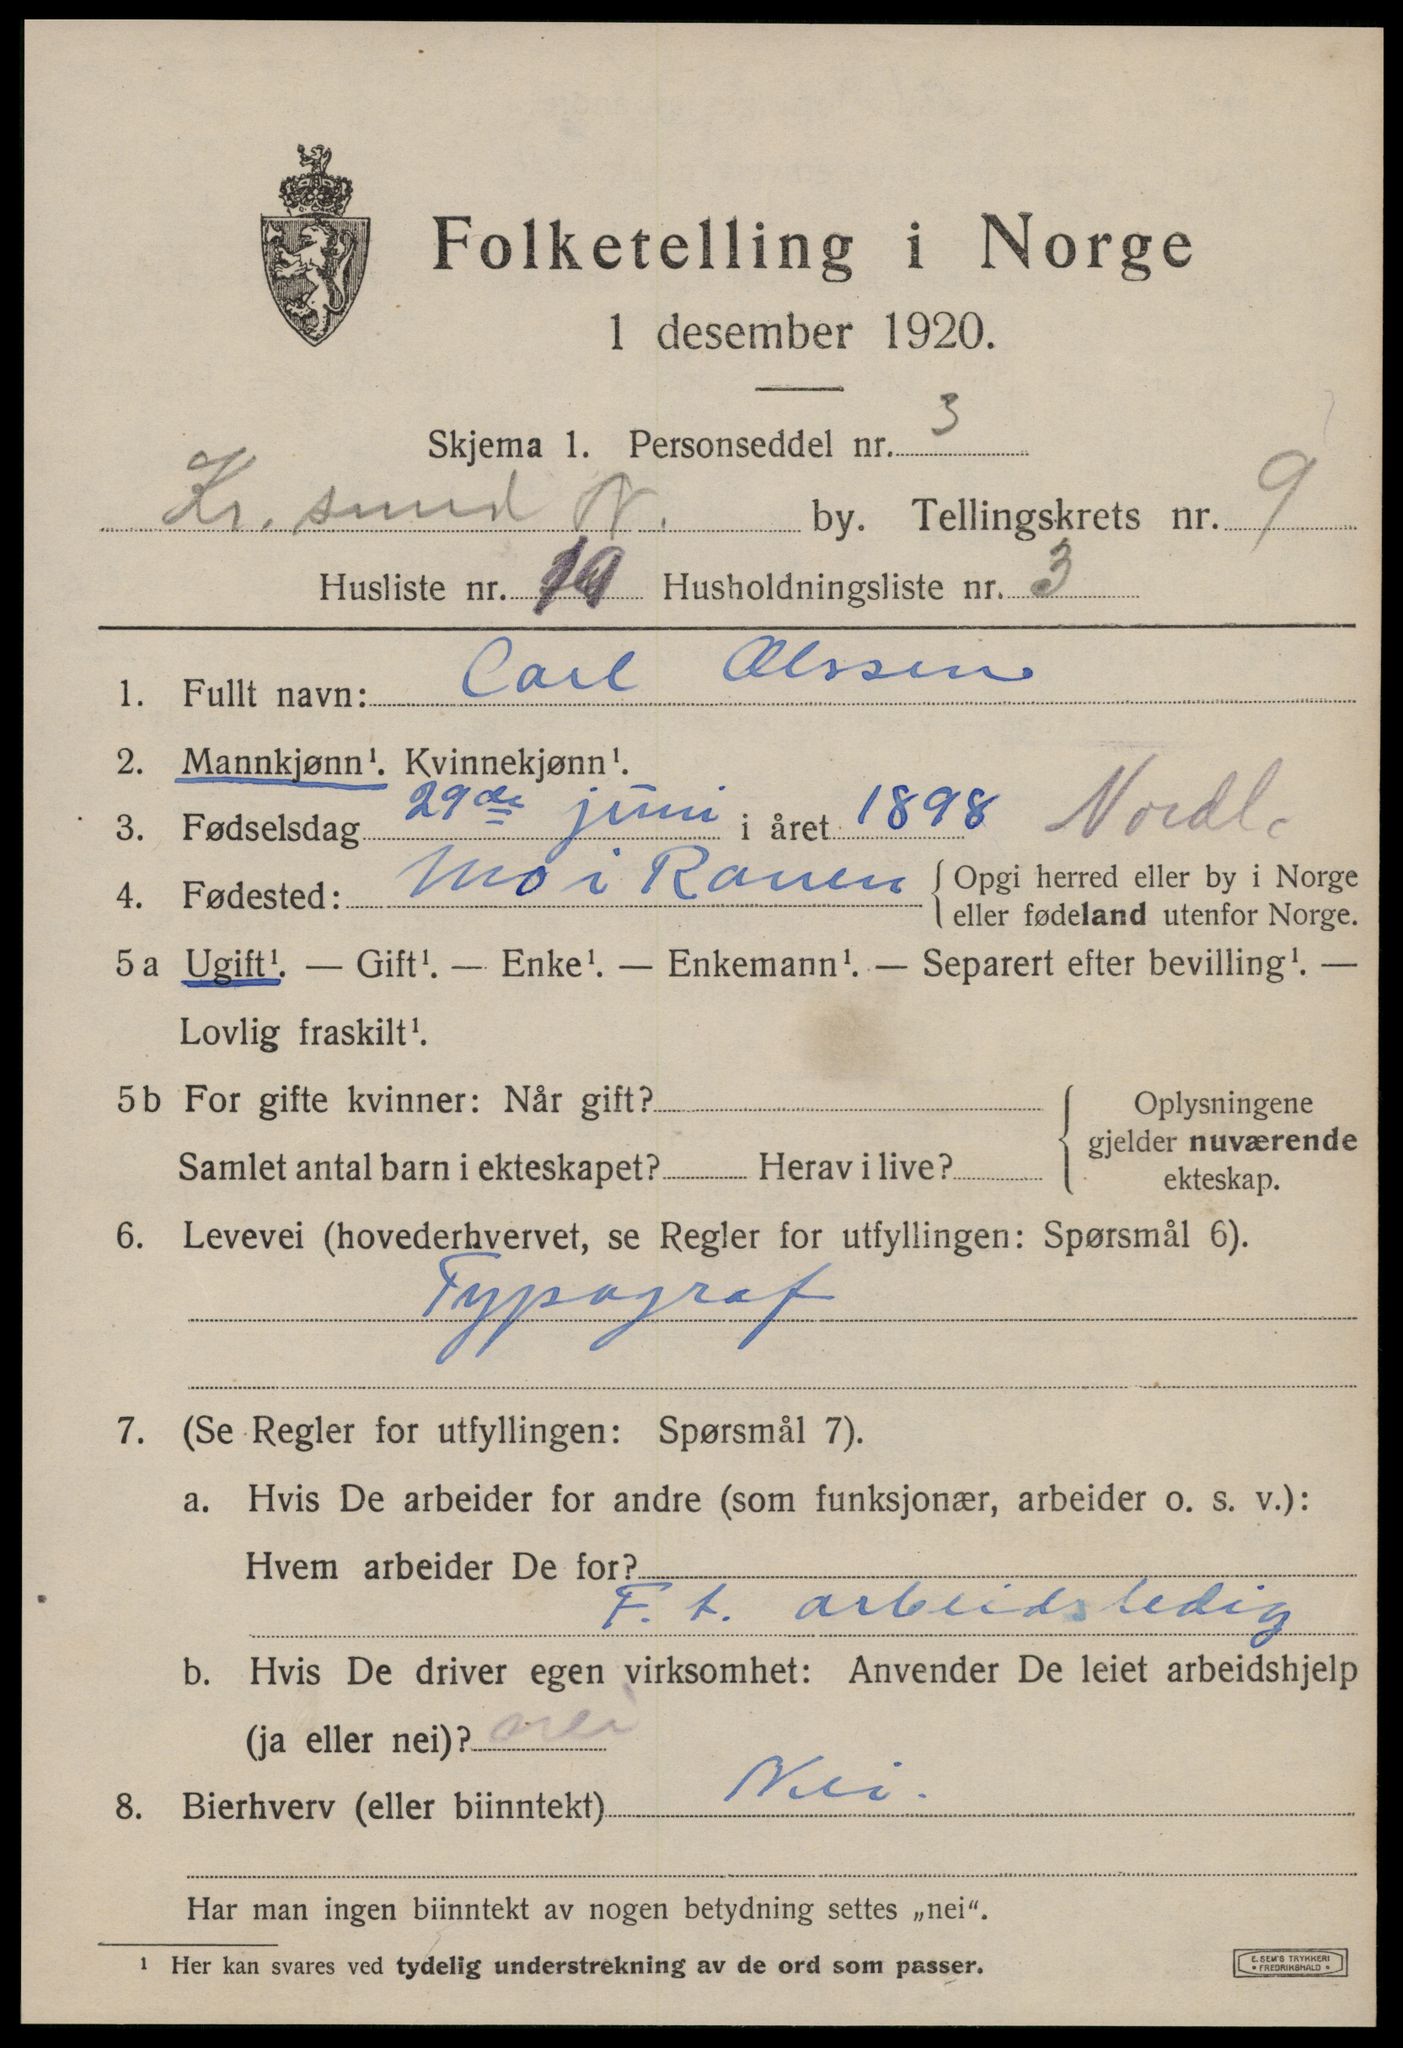 Folketelling i Norge
1 desember 1920.
Skjema 1. Personseddel nr. 3
Kr. sund N. by. Tellingskrets nr. 9
Husliste nr. Husholdningsliste nr. 3
1. Fullt navn: Carl Olssen
2. Mannkjønn¹. Kvinnekjønn¹.
3. Fødselsdag 29de juni i året 1898 Nordl.
4. Fødested: Mo i Ranen { Opgi herred eller by i Norge
eller fødeland utenfor Norge.
5 a Ugift¹. — Gift¹. — Enke¹. — Enkemann¹. — Separert efter bevilling¹. —
Lovlig fraskilt¹.
5 b For gifte kvinner: Når gift? { Oplysningene
gjelder nuværende
Samlet antal barn i ekteskapet? Herav i live? ekteskap.
6. Levevei (hovederhvervet, se Regler for utfyllingen: Spørsmål 6).
Typograf
7. (Se Regler for utfyllingen: Spørsmål 7).
a. Hvis De arbeider for andre (som funksjonær, arbeider o. s. v.):
Hvem arbeider De for?
F. t. arbeidsledig
b. Hvis De driver egen virksomhet: Anvender De leiet arbeidshjelp
(ja eller nei)? nei
8. Bierhverv (eller biinntekt) Nei.
Har man ingen biinntekt av nogen betydning settes „nei“.
¹ Her kan svares ved tydelig understrekning av de ord som passer.
E. SEM'S TRYKKERI
• FREDRIKSHALD •